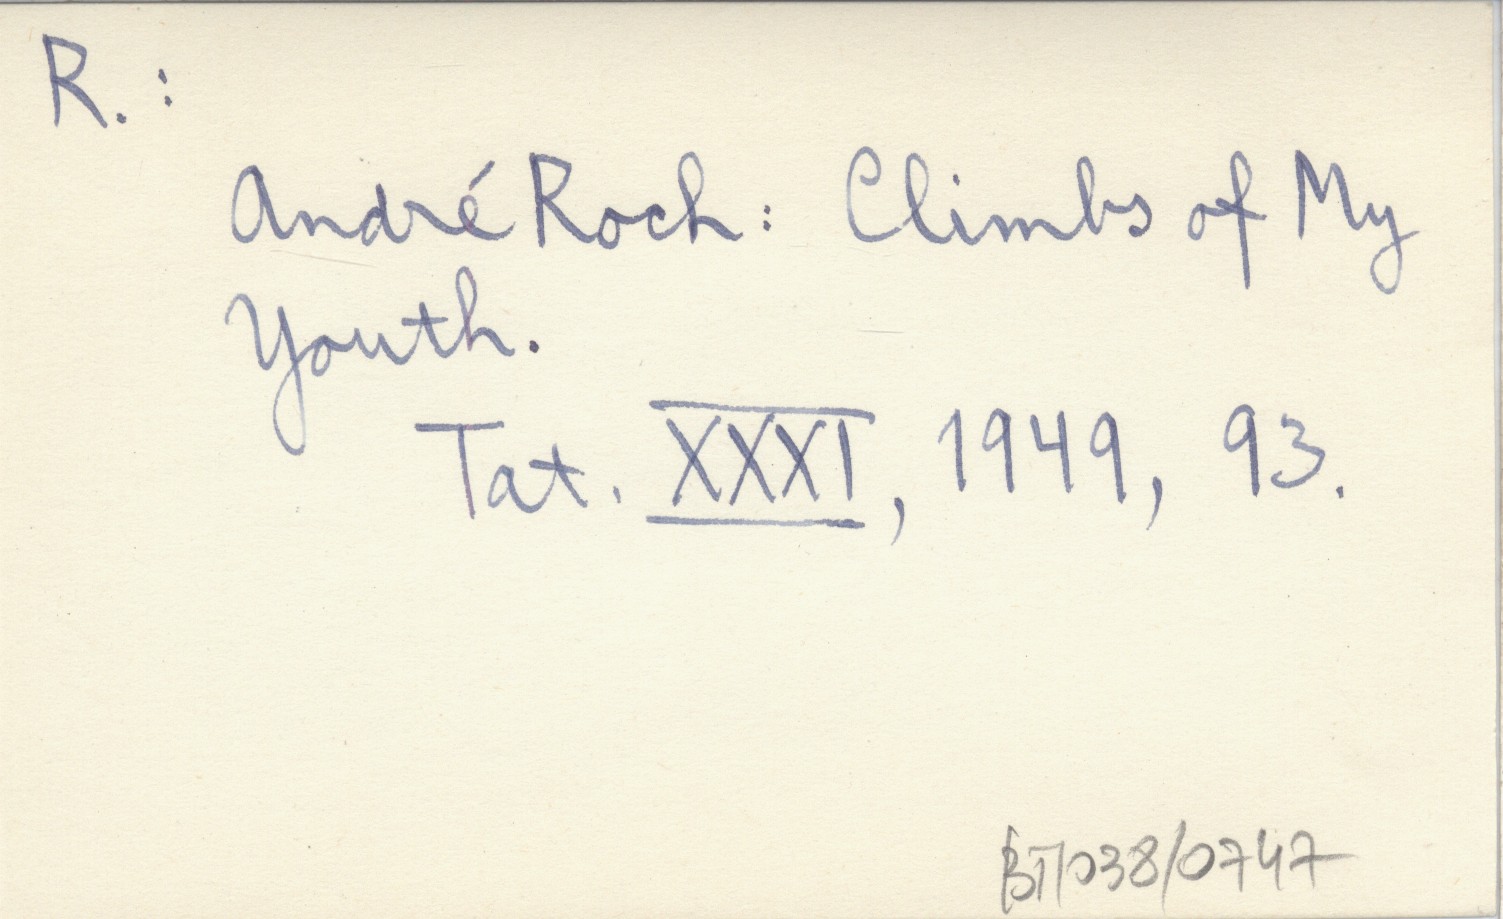 R.:
André Roch: Climbs of My
Youth.
Tat. XXXI, 1949, 93.
BT/038/0747